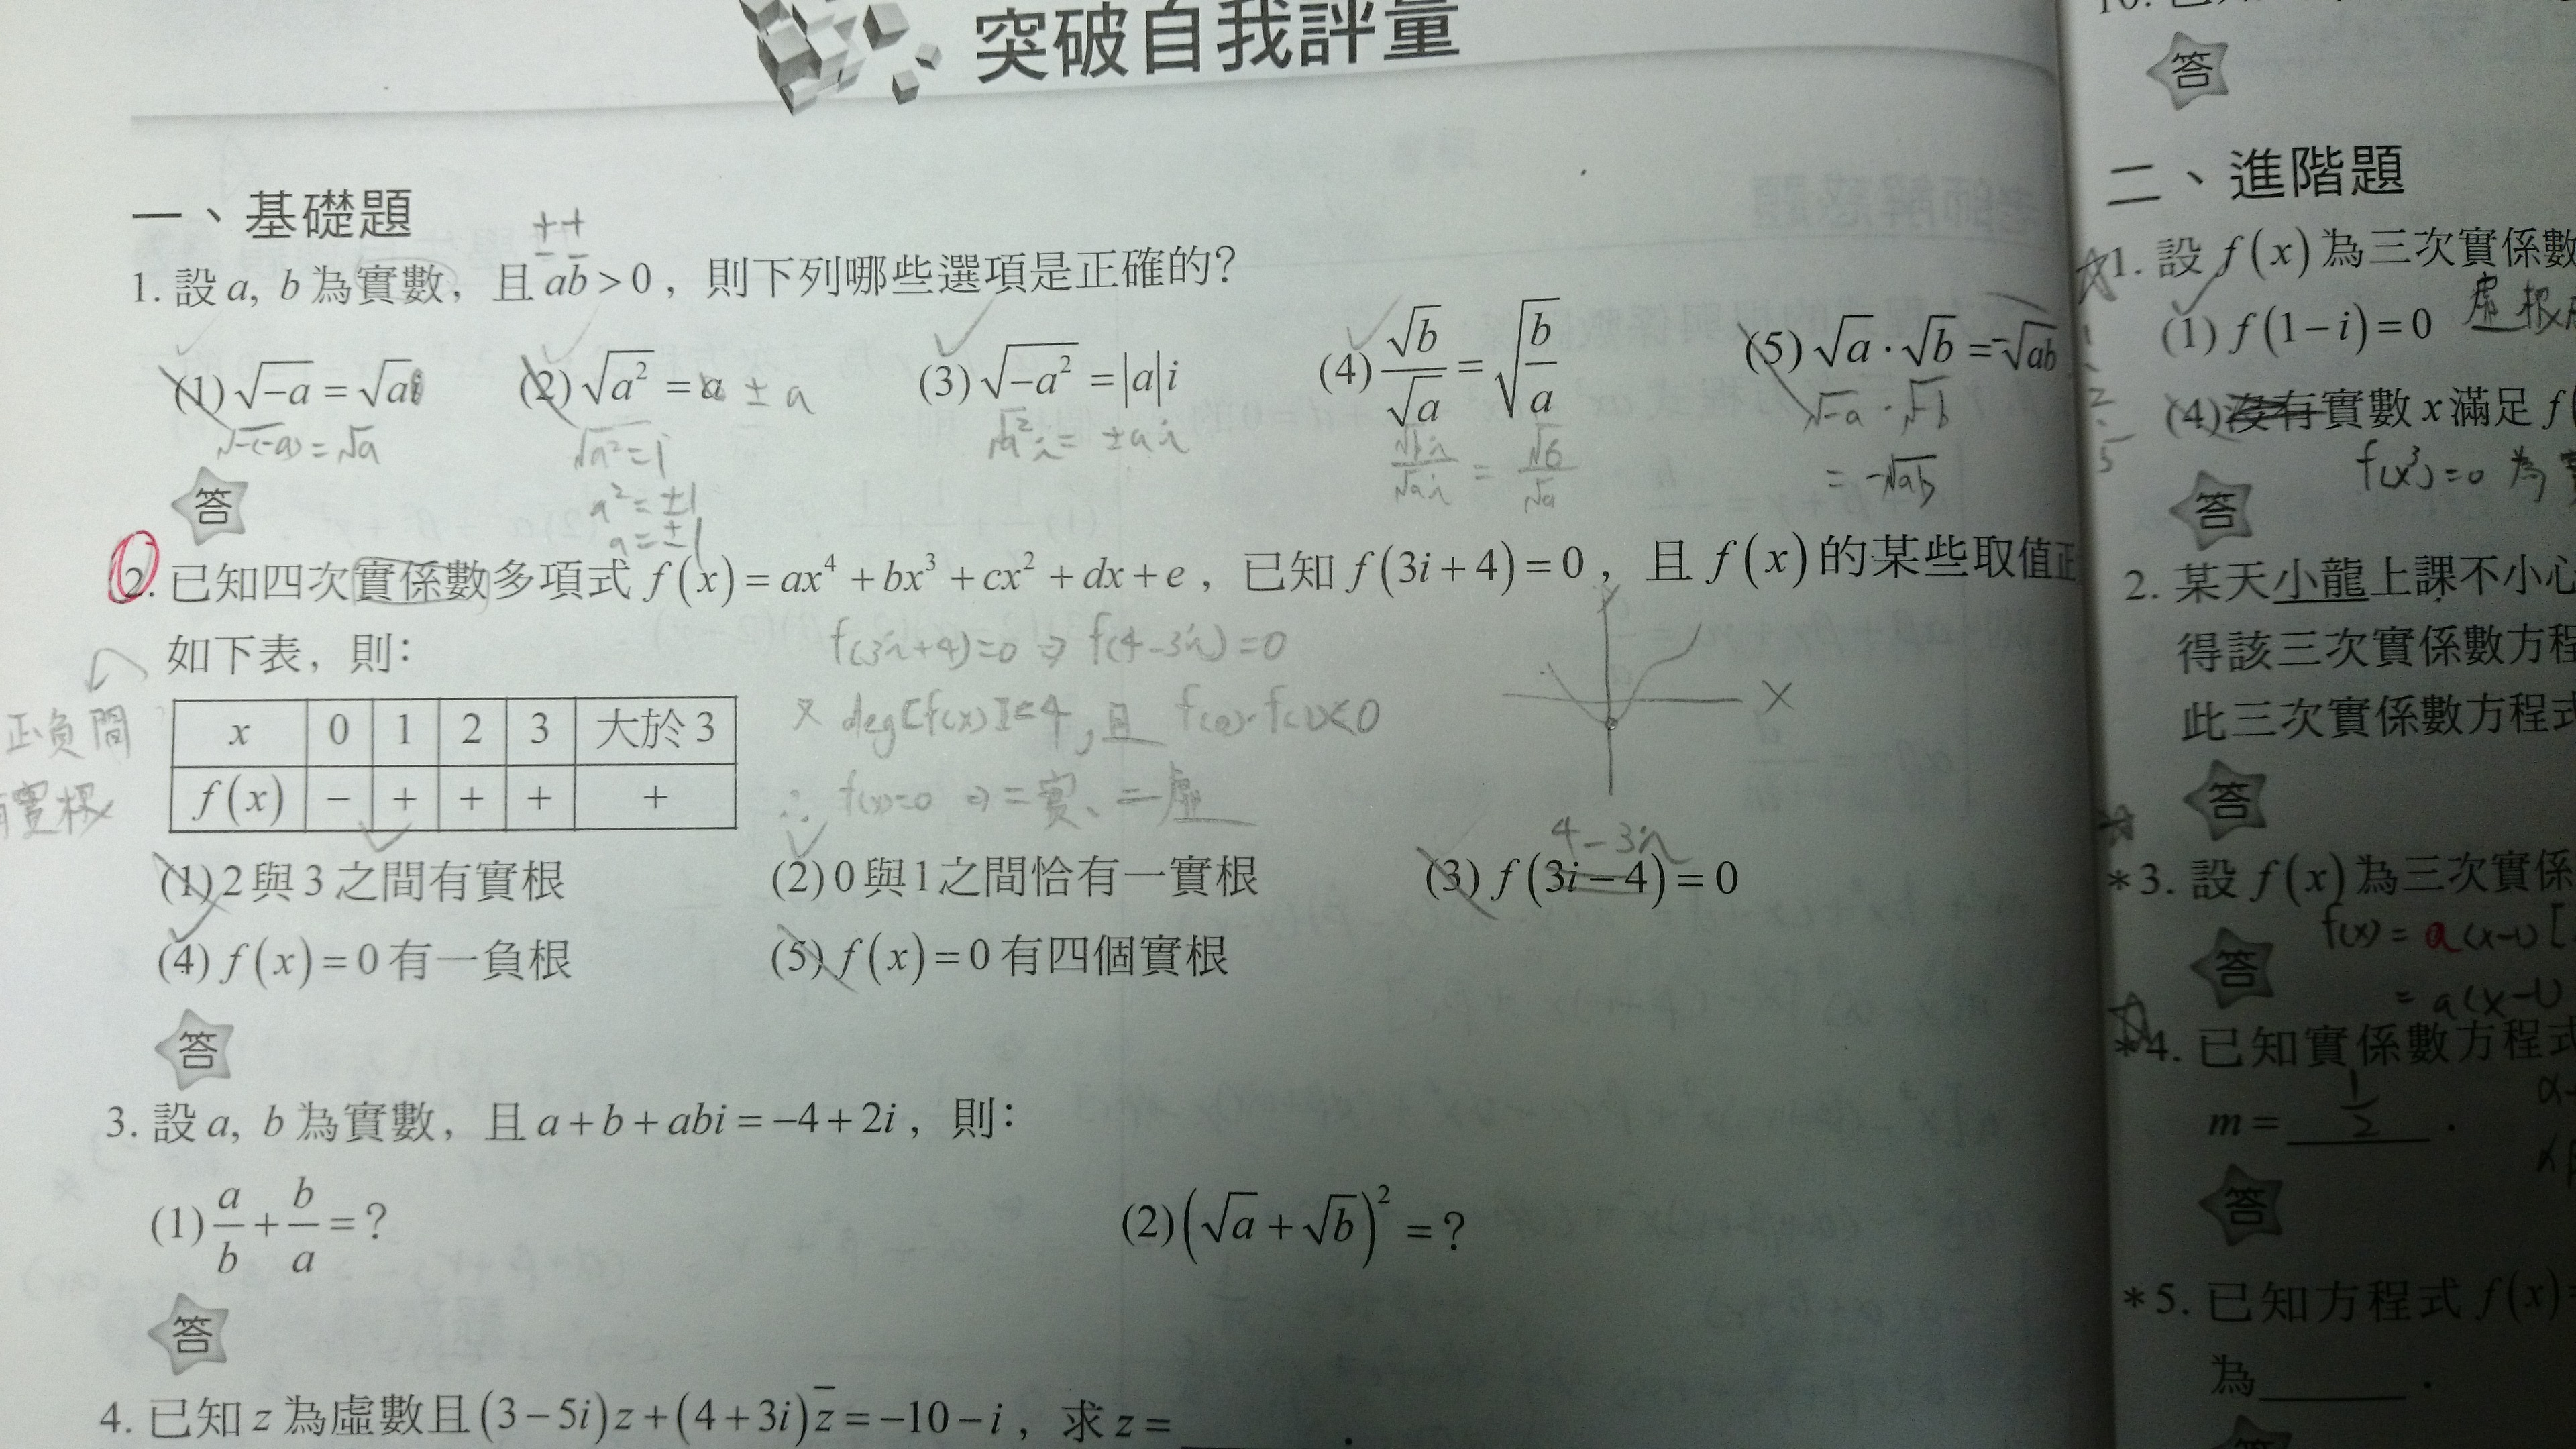 突破自我評量
一、基礎題
++
− −
1. 設 a, b 為實數，且 ab > 0，則下列哪些選項是正確的？
(1) √(−a) = √a i
(2) √(a²) = a ± a
(3) √(−a²) = |a| i
(4) √b/√a = √(b/a)
(5) √a · √b = −√(ab)
√−(−a) = √a
√a² = 1
a² = ±1
a = ±1
√a² i = ±a i
√b i/√a i = √b/√a
√−a · √−b
= −√ab
答
2. 已知四次實係數多項式 f(x) = ax⁴ + bx³ + cx² + dx + e，已知 f(3i + 4) = 0，且 f(x) 的某些取值正
如下表，則：
f(3i+4)=0 ⇒ f(4−3i)=0
又 deg[f(x)]=4，且 f(0)·f(1)<0
∴ f(x)=0 ⇒ 二實、二虛
y
x
正負間
有實根
x 0 1 2 3 大於 3
f(x) − + + + +
4−3i
(1) 2 與 3 之間有實根 (2) 0 與 1 之間恰有一實根 (3) f(3i − 4) = 0
(4) f(x) = 0 有一負根 (5) f(x) = 0 有四個實根
答
3. 設 a, b 為實數，且 a + b + abi = −4 + 2i，則：
(1) a/b + b/a = ? (2) (√a + √b)² = ?
答
4. 已知 z 為虛數且 (3 − 5i)z + (4 + 3i)z̅ = −10 − i，求 z = ______.
10. 已
答
二、進階題
1. 設 f(x) 為三次實係數
(1) f(1 − i) = 0 虛根
(4) 沒有實數 x 滿足 f(
f(x³)=0 為
答
2. 某天小龍上課不小心
得該三次實係數方程
此三次實係數方程式
答
*3. 設 f(x) 為三次實係
f(x) = a(x−1)[
= a(x−1)
答
*4. 已知實係數方程式
m = 1/2 .
答
*5. 已知方程式 f(x)=
為______.
答